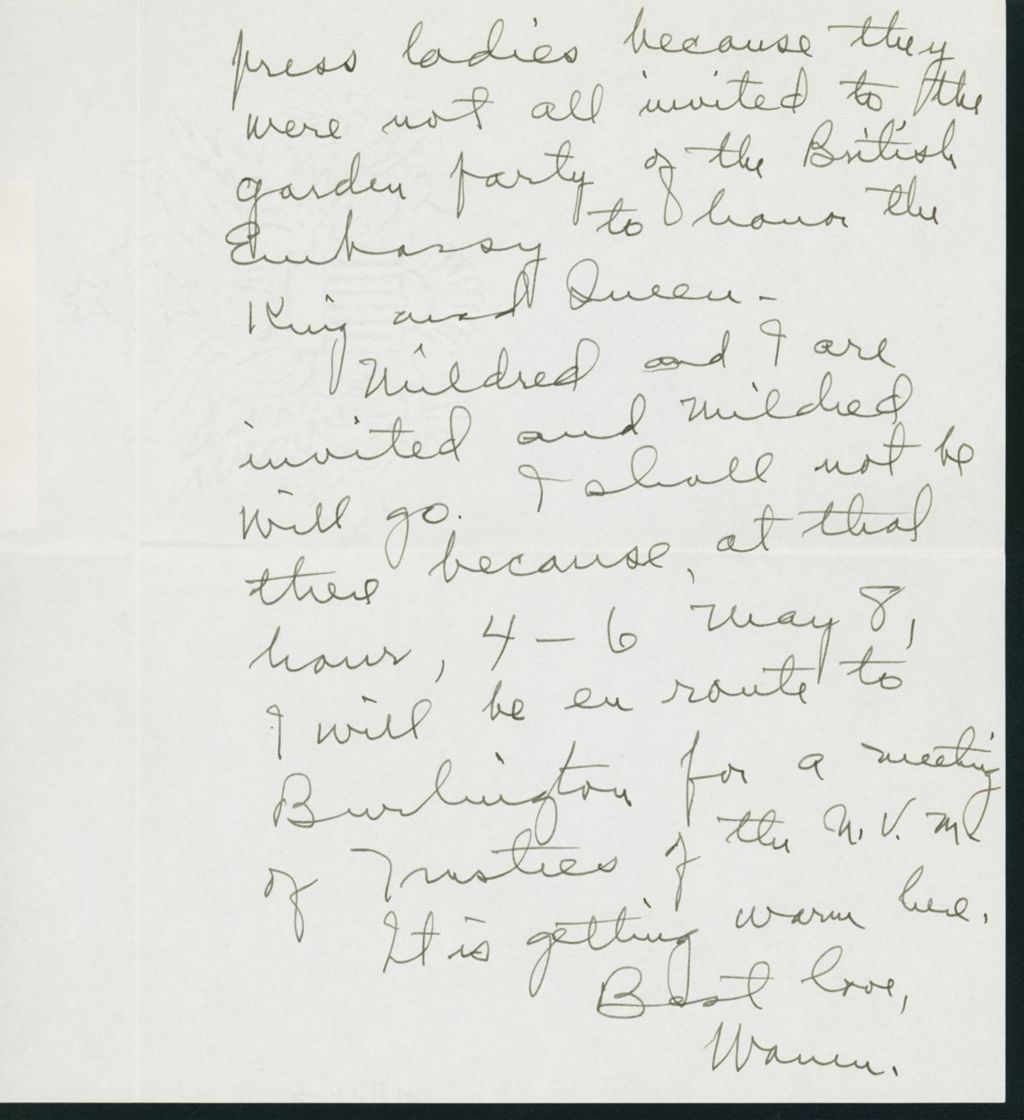 press ladies because they
were not all invited to the
garden party of the British
Embassy to honor the
King and Queen -
Mildred and I are
invited and Mildred
will go. I shall not be
there because, at that
hour, 4 - 6 May 8,
I will be en route to
Burlington for a meeting
of Trustees of the U. V. M.
It is getting warm here.
Best love,
Warren.